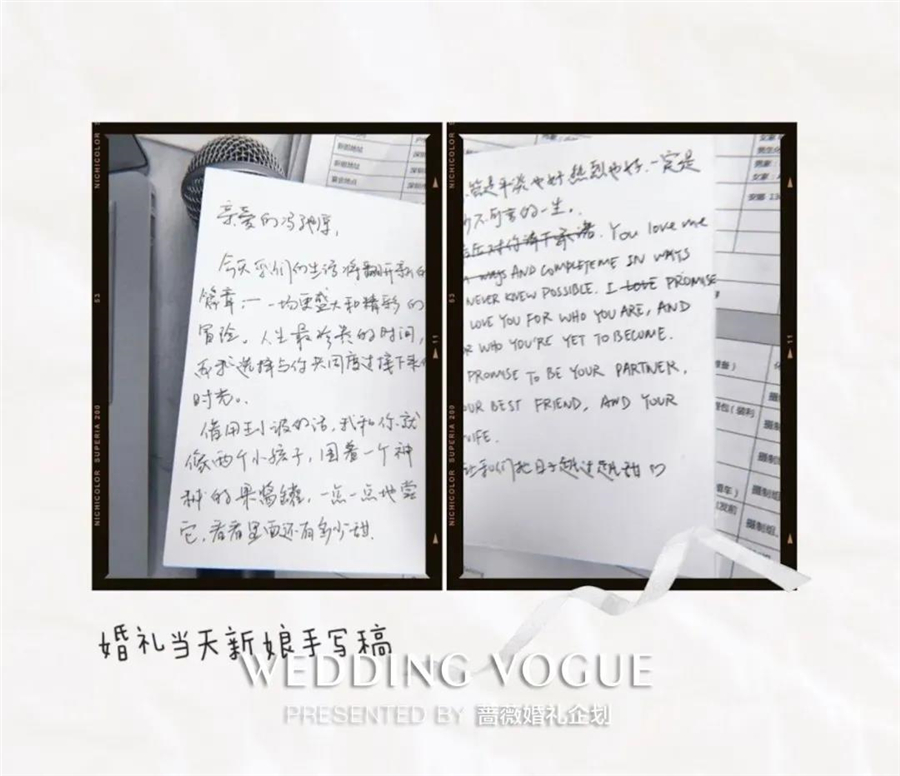 亲爱的冯
今天我们的生活将翻开新的
篇章:一场更盛大和精彩的
冒险。人生最珍贵的时间,
我选择与你共同度过接下来
时光。
借用王小波的话,我和你就
像两个小孩子,围着一个神
秘的果酱罐,一点一点地尝
它,看看里面还有多少甜.
管是平淡也好 热烈也好.一定是
的一生.
对你许下承诺. You love me
ways AND COMPLETE ME IN WAYS
NEVER KNEW POSSIBLE. I LOVE PROMISE
LOVE YOU FOR WHO YOU ARE, AND
OR WHO YOU'RE YET TO BECOME.
PROMISE TO BE YOUR PARTNER,
OUR BEST FRIEND, AND YOUR
WIFE.
让我们把日子越过越甜♡
NICHICOLOR
53
NICHICOLOR SUPERIA 200
11
NICHICOLOR
53
NICHICOLOR SUPERIA 200
11
婚礼当天新娘手写稿
WEDDING VOGUE
PRESENTED BY 蔷薇婚礼企划